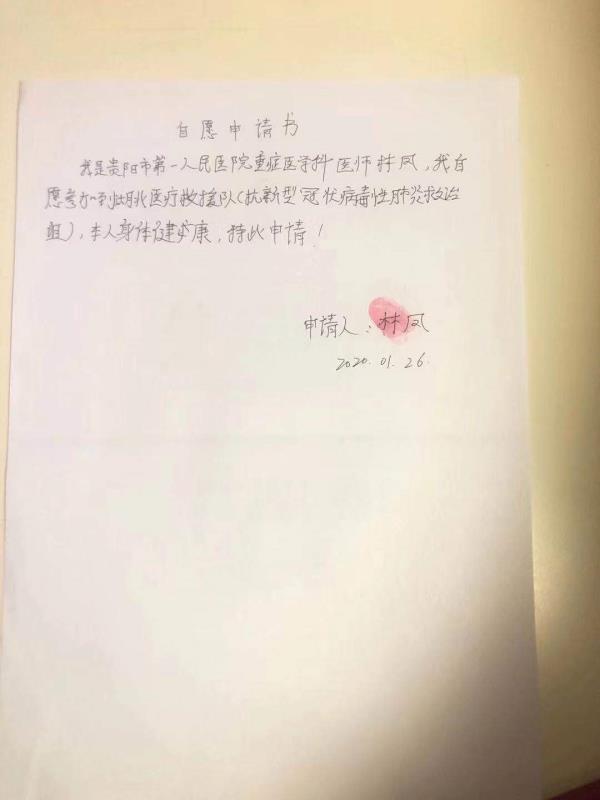 自愿申请书
我是贵阳市第一人民医院重症医学科医师林凤,我自
愿参加到湖北医疗救援队(抗新型冠状病毒性肺炎救治
组),本人身体健康,特此申请!
申请人:林凤
2020.01.26.